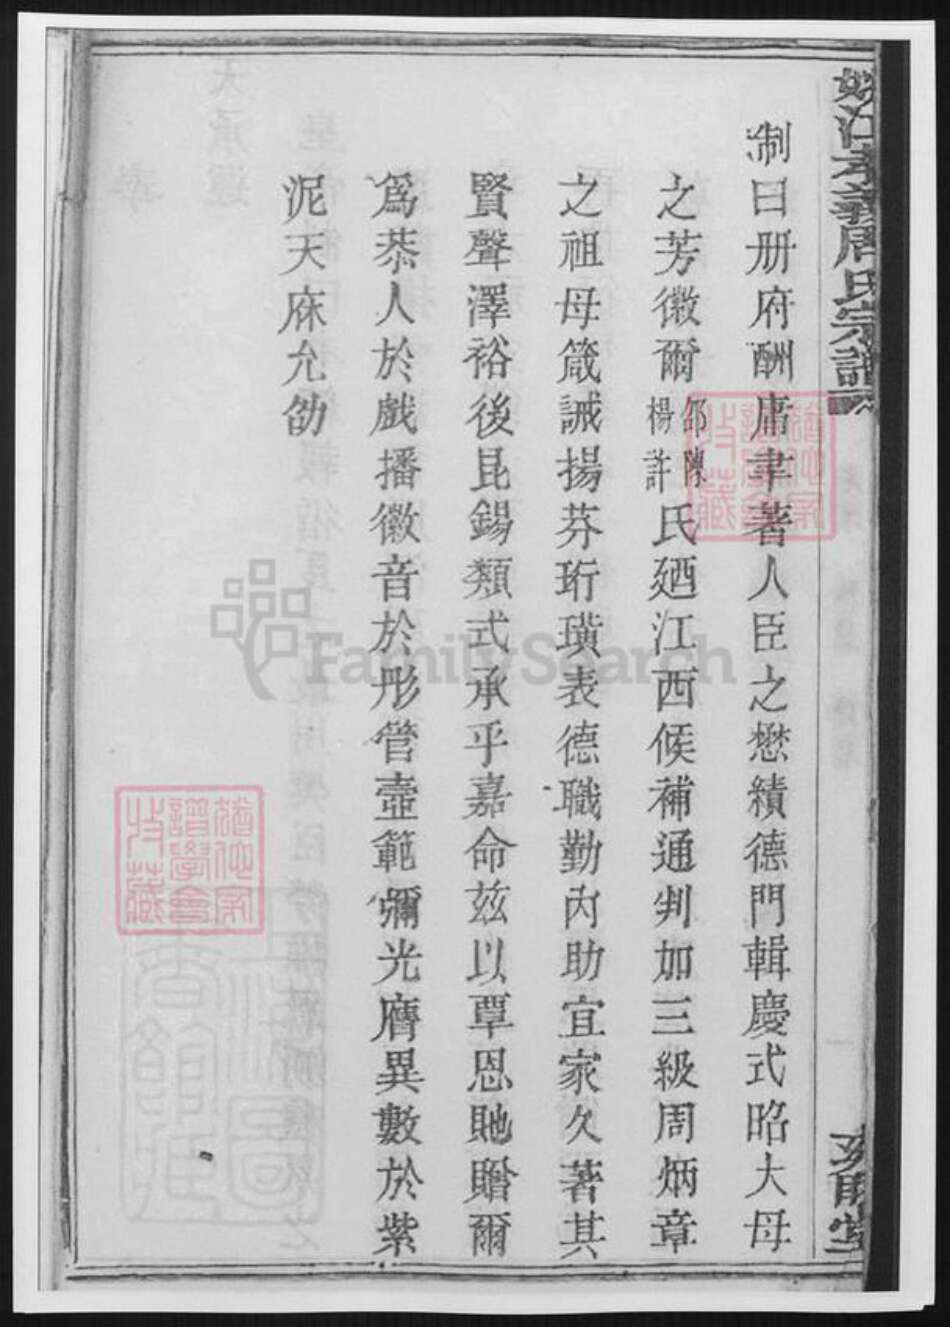 姚江孝義周氏宗譜
制曰册府酬庸聿著人臣之懋績德門輯慶式昭大母
之芳徽爾邵陳楊許氏廼江西候補通判加三級周炳章
之祖母箴誡揚芬珩璜表德職勤內助宜家久著其
賢聲澤裕後昆錫類式承乎嘉命茲以覃恩貤贈爾
為恭人於戲播徽音於彤管壼範彌光膺異數於紫
泥天庥允劭
FamilySearch